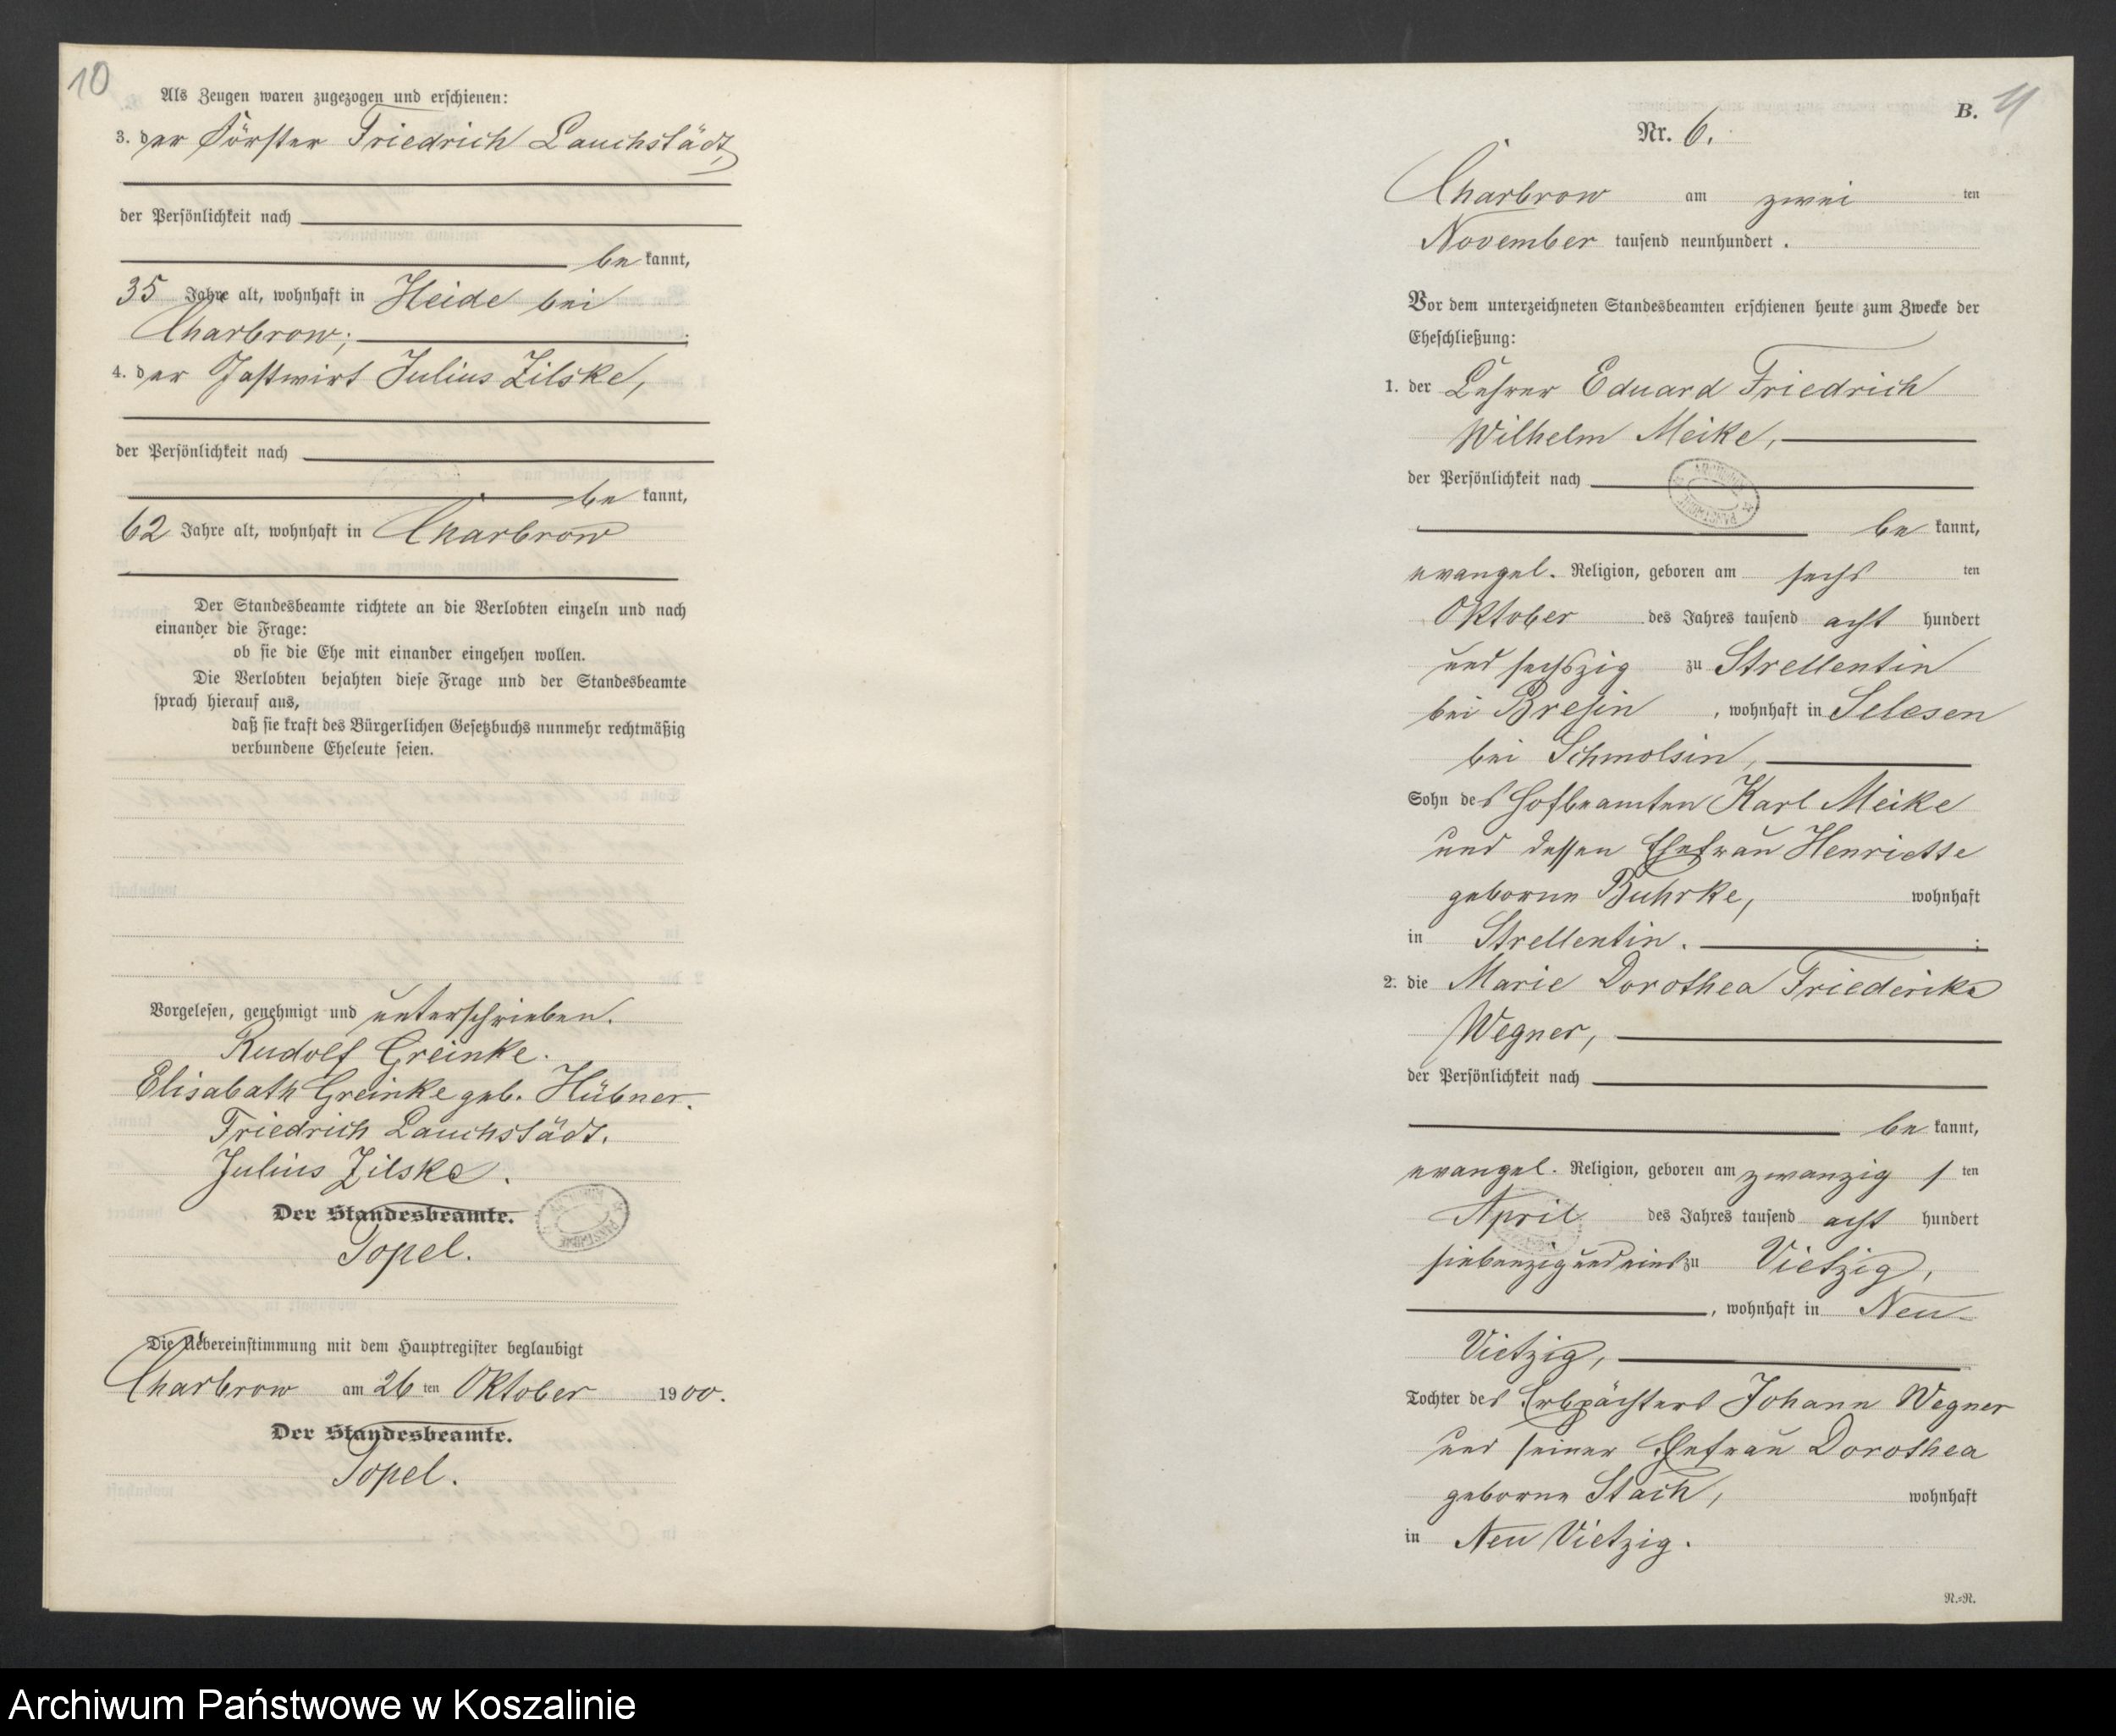 10
Als Zeugen waren zugezogen und erschienen:
3. der Förster Friedrich Lauchstädt,
der Persönlichkeit nach
be kannt,
35 Jahre alt, wohnhaft in Heide bei
Charbrow;
4. der Gastwirt Julius Zilske,
der Persönlichkeit nach
be kannt,
62 Jahre alt, wohnhaft in Charbrow
Der Standesbeamte richtete an die Verlobten einzeln und nach
einander die Frage:
ob sie die Ehe mit einander eingehen wollen.
Die Verlobten bejahten diese Frage und der Standesbeamte
sprach hierauf aus,
daß sie kraft des Bürgerlichen Gesetzbuchs nunmehr rechtmäßig
verbundene Eheleute seien.
Vorgelesen, genehmigt und unterschrieben.
Rudolf Greinke.
Elisabath Greinke geb. Hübner.
Friedrich Lauchstädt.
Julius Zilske.
Der Standesbeamte.
Topel.
Die Uebereinstimmung mit dem Hauptregister beglaubigt
Charbrow am 26 ten Oktober 1900.
Der Standesbeamte.
Topel.
B. 11
Nr. 6.
Charbrow am zwei ten
November tausend neunhundert.
Vor dem unterzeichneten Standesbeamten erschienen heute zum Zwecke der
Eheschließung:
1. der Lehrer Eduard Friedrich
Wilhelm Meike,
der Persönlichkeit nach
be kannt,
evangel. Religion, geboren am sechs ten
Oktober des Jahres tausend acht hundert
und sechszig zu Strellentin
bei Bresin, wohnhaft in Selesen
bei Schmolsin,
Sohn des Hofbeamten Karl Meike
und dessen Ehefrau Henriette
geborne Buhrke, wohnhaft
in Strellentin.;
2. die Marie Dorothea Friederike
Wegner,
der Persönlichkeit nach
be kannt,
evangel. Religion, geboren am zwanzig s ten
April des Jahres tausend acht hundert
siebenzig und eins zu Vietzig,
, wohnhaft in Neu-
Vietzig,
Tochter des Erbpächters Johann Wegner
und seiner Ehefrau Dorothea
geborne Stach, wohnhaft
in Neu Vietzig.
N.=N.
Archiwum Państwowe w Koszalinie